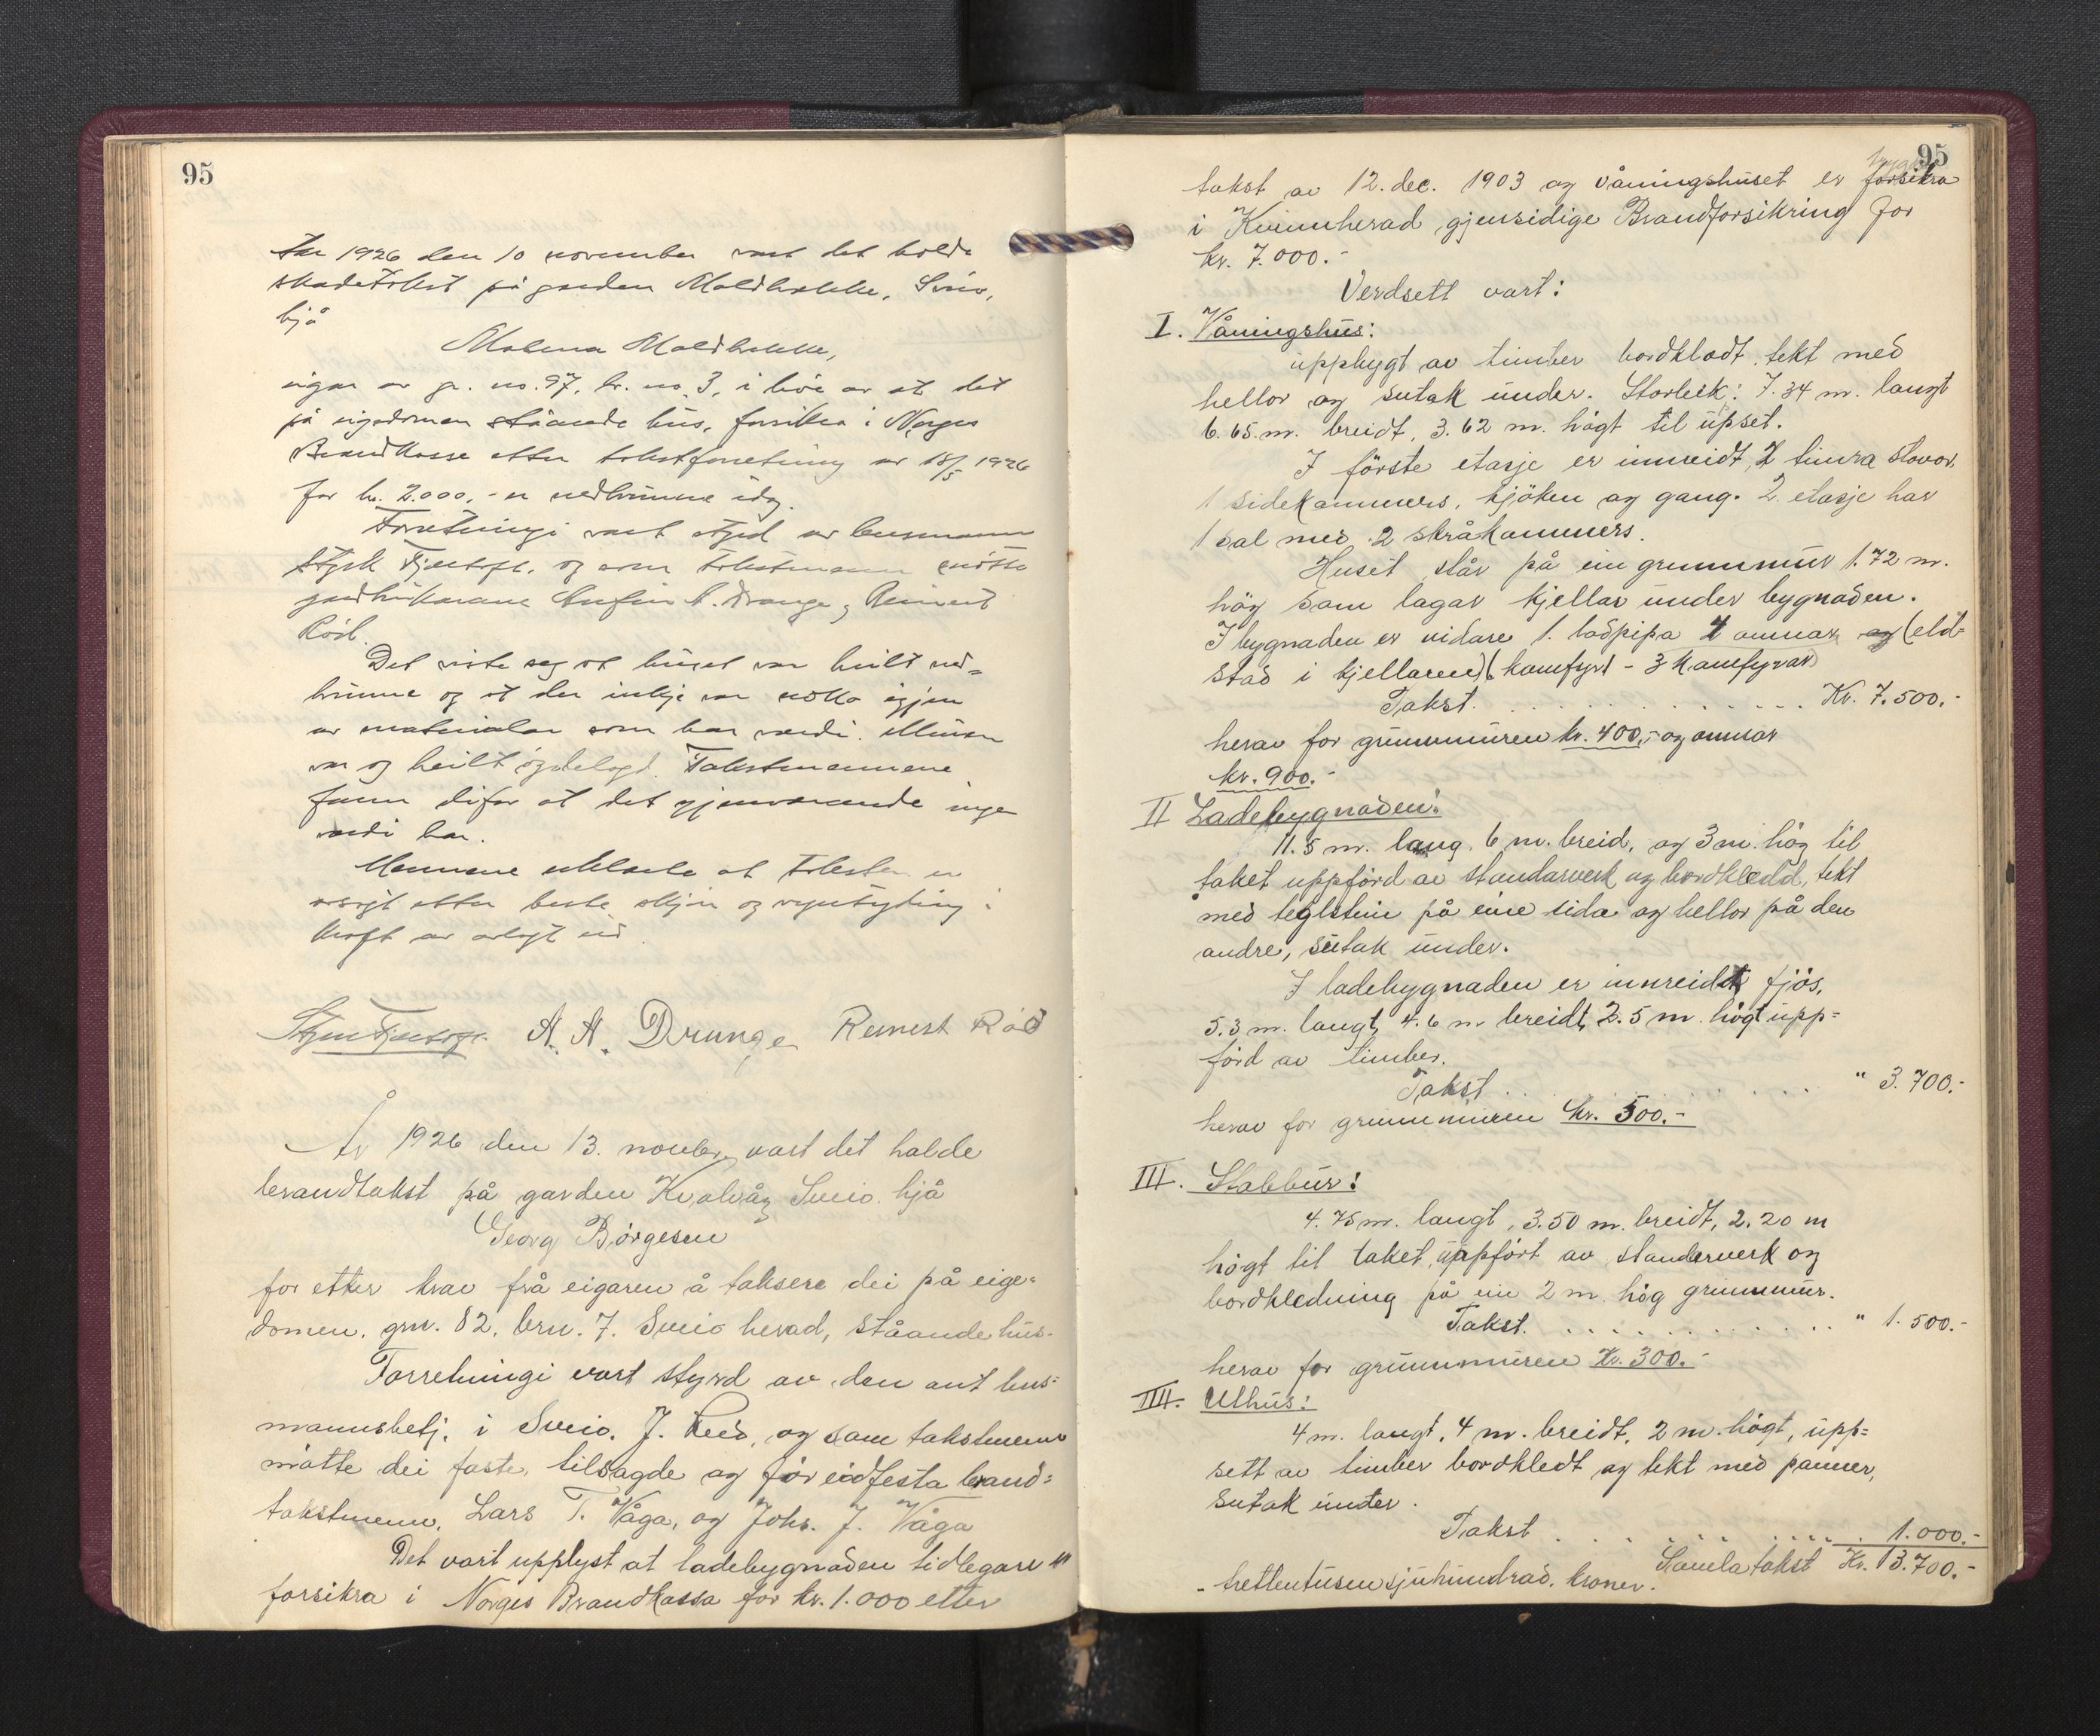 95
År 1926 den 10 november vart det halde
skadetakst på garden Moldbakke, Sveio,
hjå
Malena Moldbakke,
eigar av gr. no. 97, br. no. 3, i høve av at det
på eigedomen ståande hus, forsikra i Norges
Brandkasse etter takstforretning av 18/5 1926
for kr. 2.000,- er nedbrunne idag.
Forretningi vart styrd av lensmann
Fjeltoft, og som takstmenn møtte
gardbrukarane A. Drange og Reinert
Röd.
Det viste seg at huset var heilt ned-
brunne og at der inkje var noko igjen
av materialar som har verdi. Muren
var og heilt øydelagd. Takstmennene
fann difor at det gjenverande inga
verdi har.
Mennene erklærte at taksten er
avsagt etter beste skjøn og
kraft av avlagt eid.
A. A. Drange Reinert Röd
År 1926 den 13. novbr. vart det halde
brandtakst på garden Kvalvåg Sveio hjå
Georg Børgesen
for etter krav frå eigaren å taksere dei på eige-
domen, gnr. 82, brn. 7. Sveio herad, ståande hus.
Forretningi vart styrd av den aut lens-
mannsbetj. i Sveio. J. og som takstmenn
møtte dei faste, tilsagde og før eidfesta brand-
takstmenn, Lars T. Våga, og Johs. J. Våga
Det vart upplyst at ladebygnaden tidlegare er
forsikra i Norges Brandkassa for kr. 1.000 etter
95
takst av 12. dec. 1903 og våningshuset er forsikra
i Kvinnherad gjensidige Brandforsikring for
kr. 7.000.-
Verdsett vart:
I. Våningshus:
uppbygt av timber bordklædt, tekt med
hellor og sutak under. Storleik: 7.34 m. langt
6.65 m. breidt, 3.62 m. högt til upset.
I förste etasje er innreidt, 2 timra stovor.
1 sidekammers, kjöken og gang. 2. etasje har
1 sal med 2 skråkammers.
Huset står på ein grunnmur 1.72 m.
hög som lagar kjellar under bygnaden.
I bygnaden er vidare 1. ladpipa 4 omnar og (eld-
stad i kjellaren) (komfyr) - 3 komfyrar
Takst. . . . . . . . . . . . . . Kr. 7.500.-
herav for grunnmuren kr. 400,- og omnar
kr. 900.-
II Ladebygnaden:
11.5 m. lang, 6 m. breid, og 3 m. hög til
taket uppförd av standarverk og bordkledd, tekt
med teglstein på eine sida og hellor på den
andre, sutak under.
I ladebygnaden er innreidt fjös,
5.3 m. langt, 4.6 m. breidt, 2.5 m. högt upp-
förd av timber.
Takst . . . . . . . . . . . " 3.700.-
herav for grunnmuren kr. 500.-
III. Stabbur:
4.75 m. langt, 3.50 m. breidt, 2.20 m
högt til taket, uppfört av standerverk og
bordkledning på ein 2 m. hög grunnmur.
Takst. . . . . . . . . . . . . " 1.500.-
herav for grunnmuren kr. 300.-
IIII. Uthus:
4 m. langt, 4 m. breidt, 2 m. högt, upp-
sett av timber bordkledt og tekt med panner,
sutak under.
Takst . . . . . . . . . . . 1.000.-
Samla takst Kr. 13.700.-
- trettentusensjuhundrad. kroner.